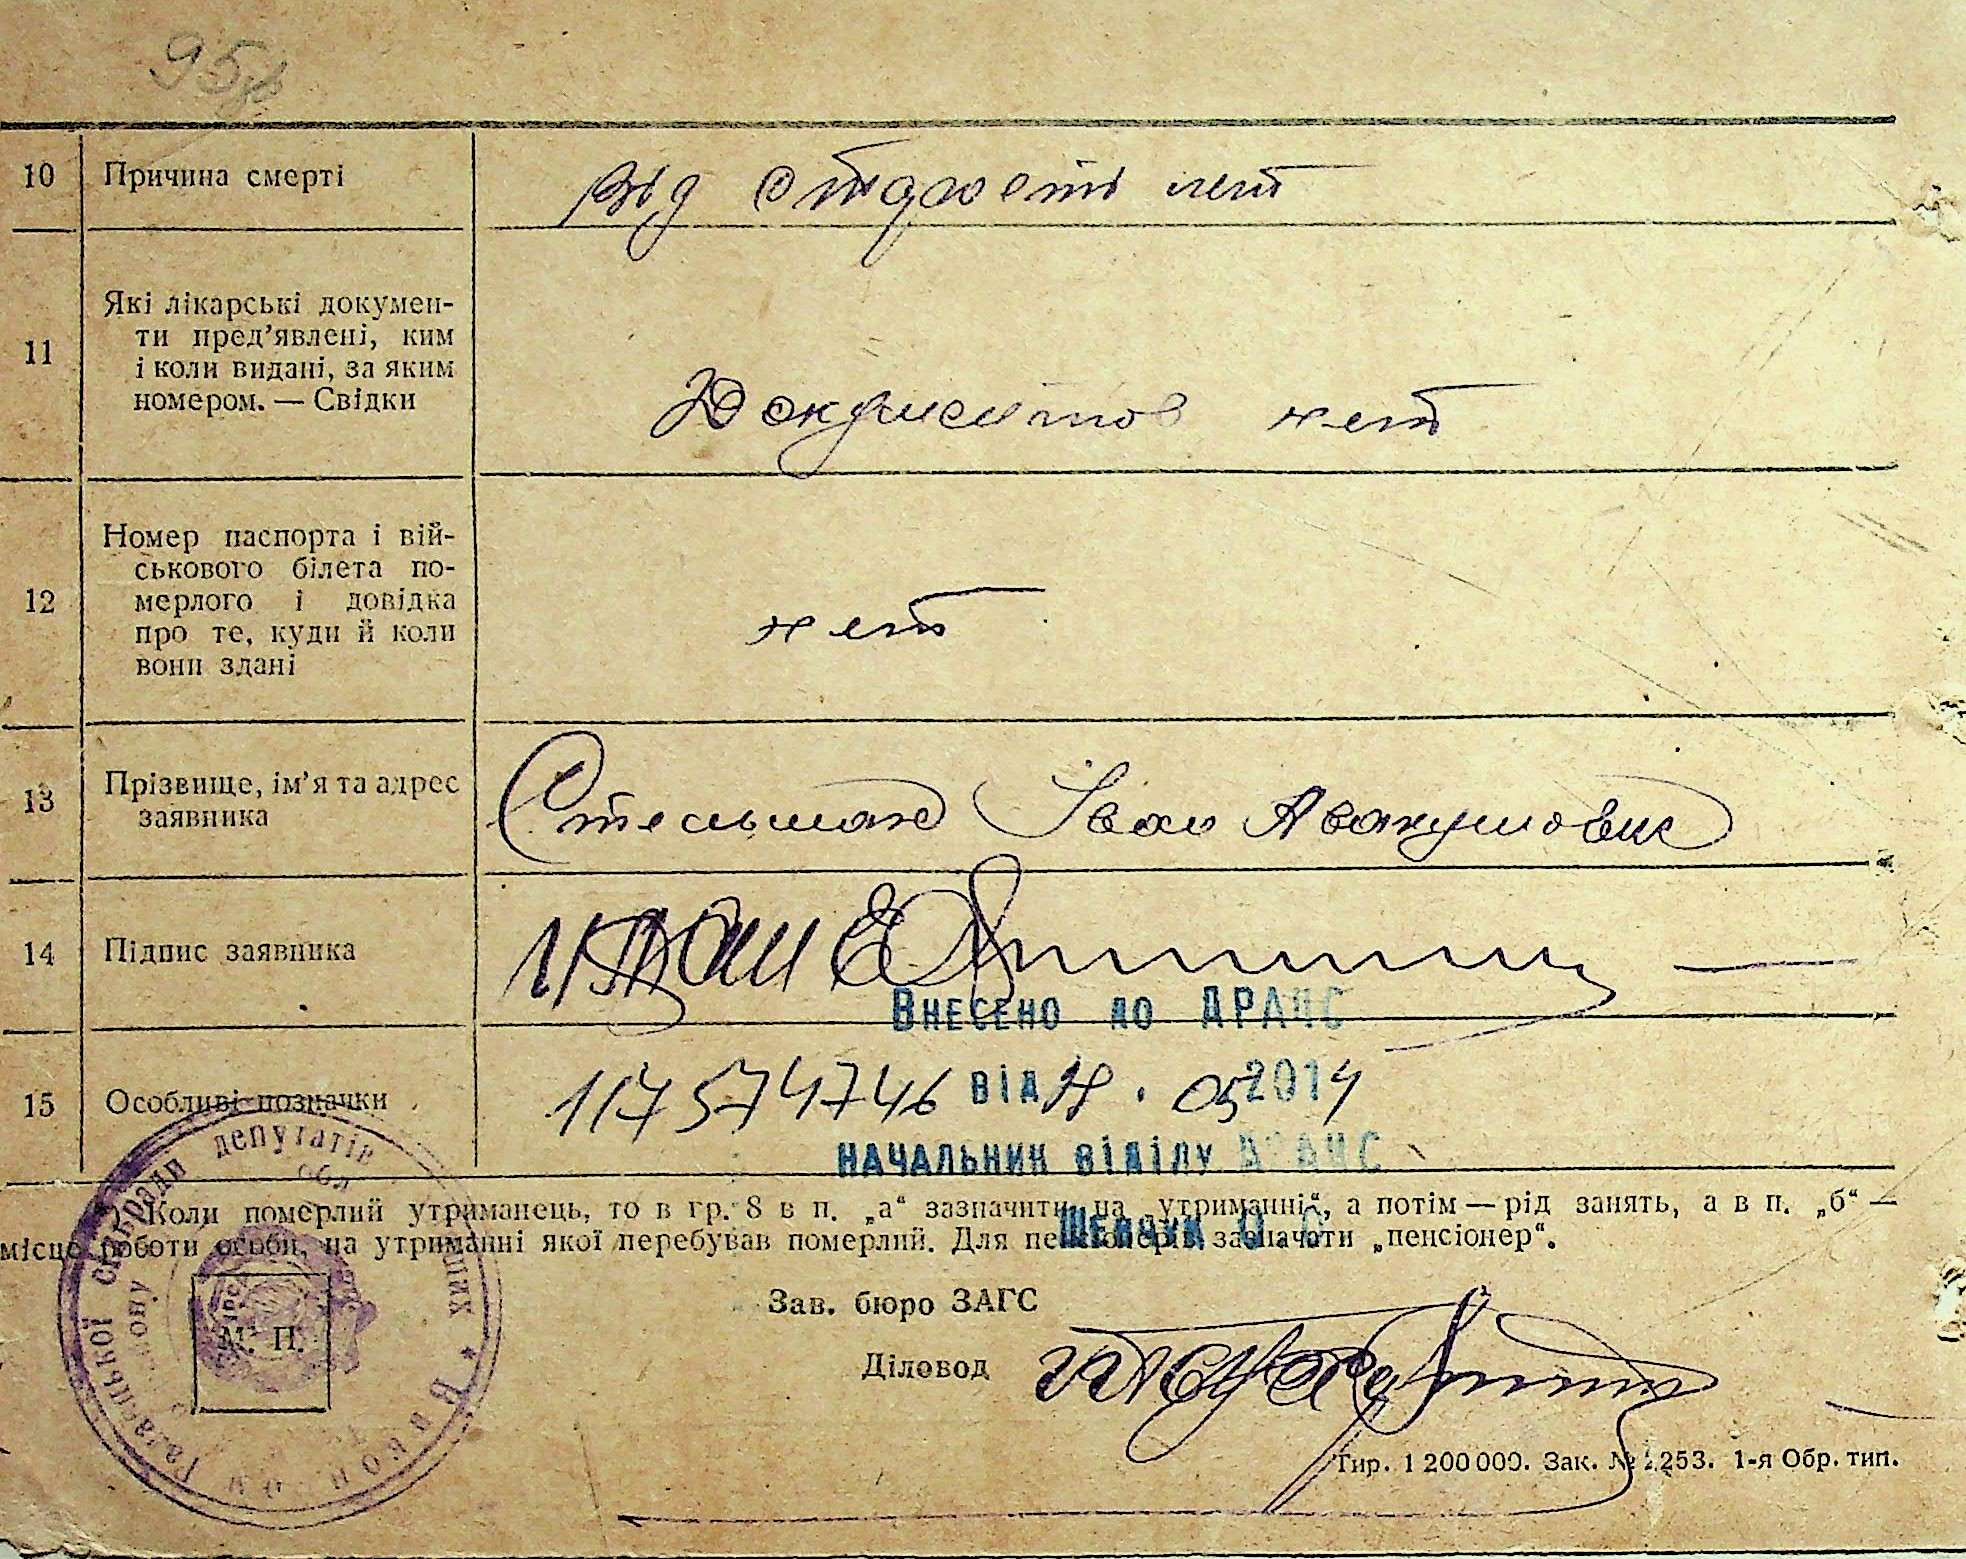 95р
10 Причина смерті від старості лет
11 Які лікарські докумен-
ти пред’явлені, ким
і коли видані, за яким
номером. — Свідки
Документов нет
12 Номер паспорта і вій-
ськового білета по-
мерлого і довідка
про те, куди й коли
вони здані
нет
13 Прізвище, ім’я та адрес
заявника
Стельмах Іван Авакумович
14 Підпис заявника
Внесено до ДРАЦС
15 Особливі позначки 117574746 від . 05 2014
начальник відділу ДРАЦС
Коли померлий утриманець, то в гр. 8 в п. „а“ зазначити „на утриманні“, а потім — рід занять, а в п. „б“ —
місце роботи особи, на утриманні якої перебував померлий. Для пенсіонерів зазначати „пенсіонер“.
Шевчук О.С
Зав. бюро ЗАГС
М. П.
Діловод
Тир. 1 200 000. Зак. № 253. 1-я Обр. тип.
сільської Ради депутатів
обл